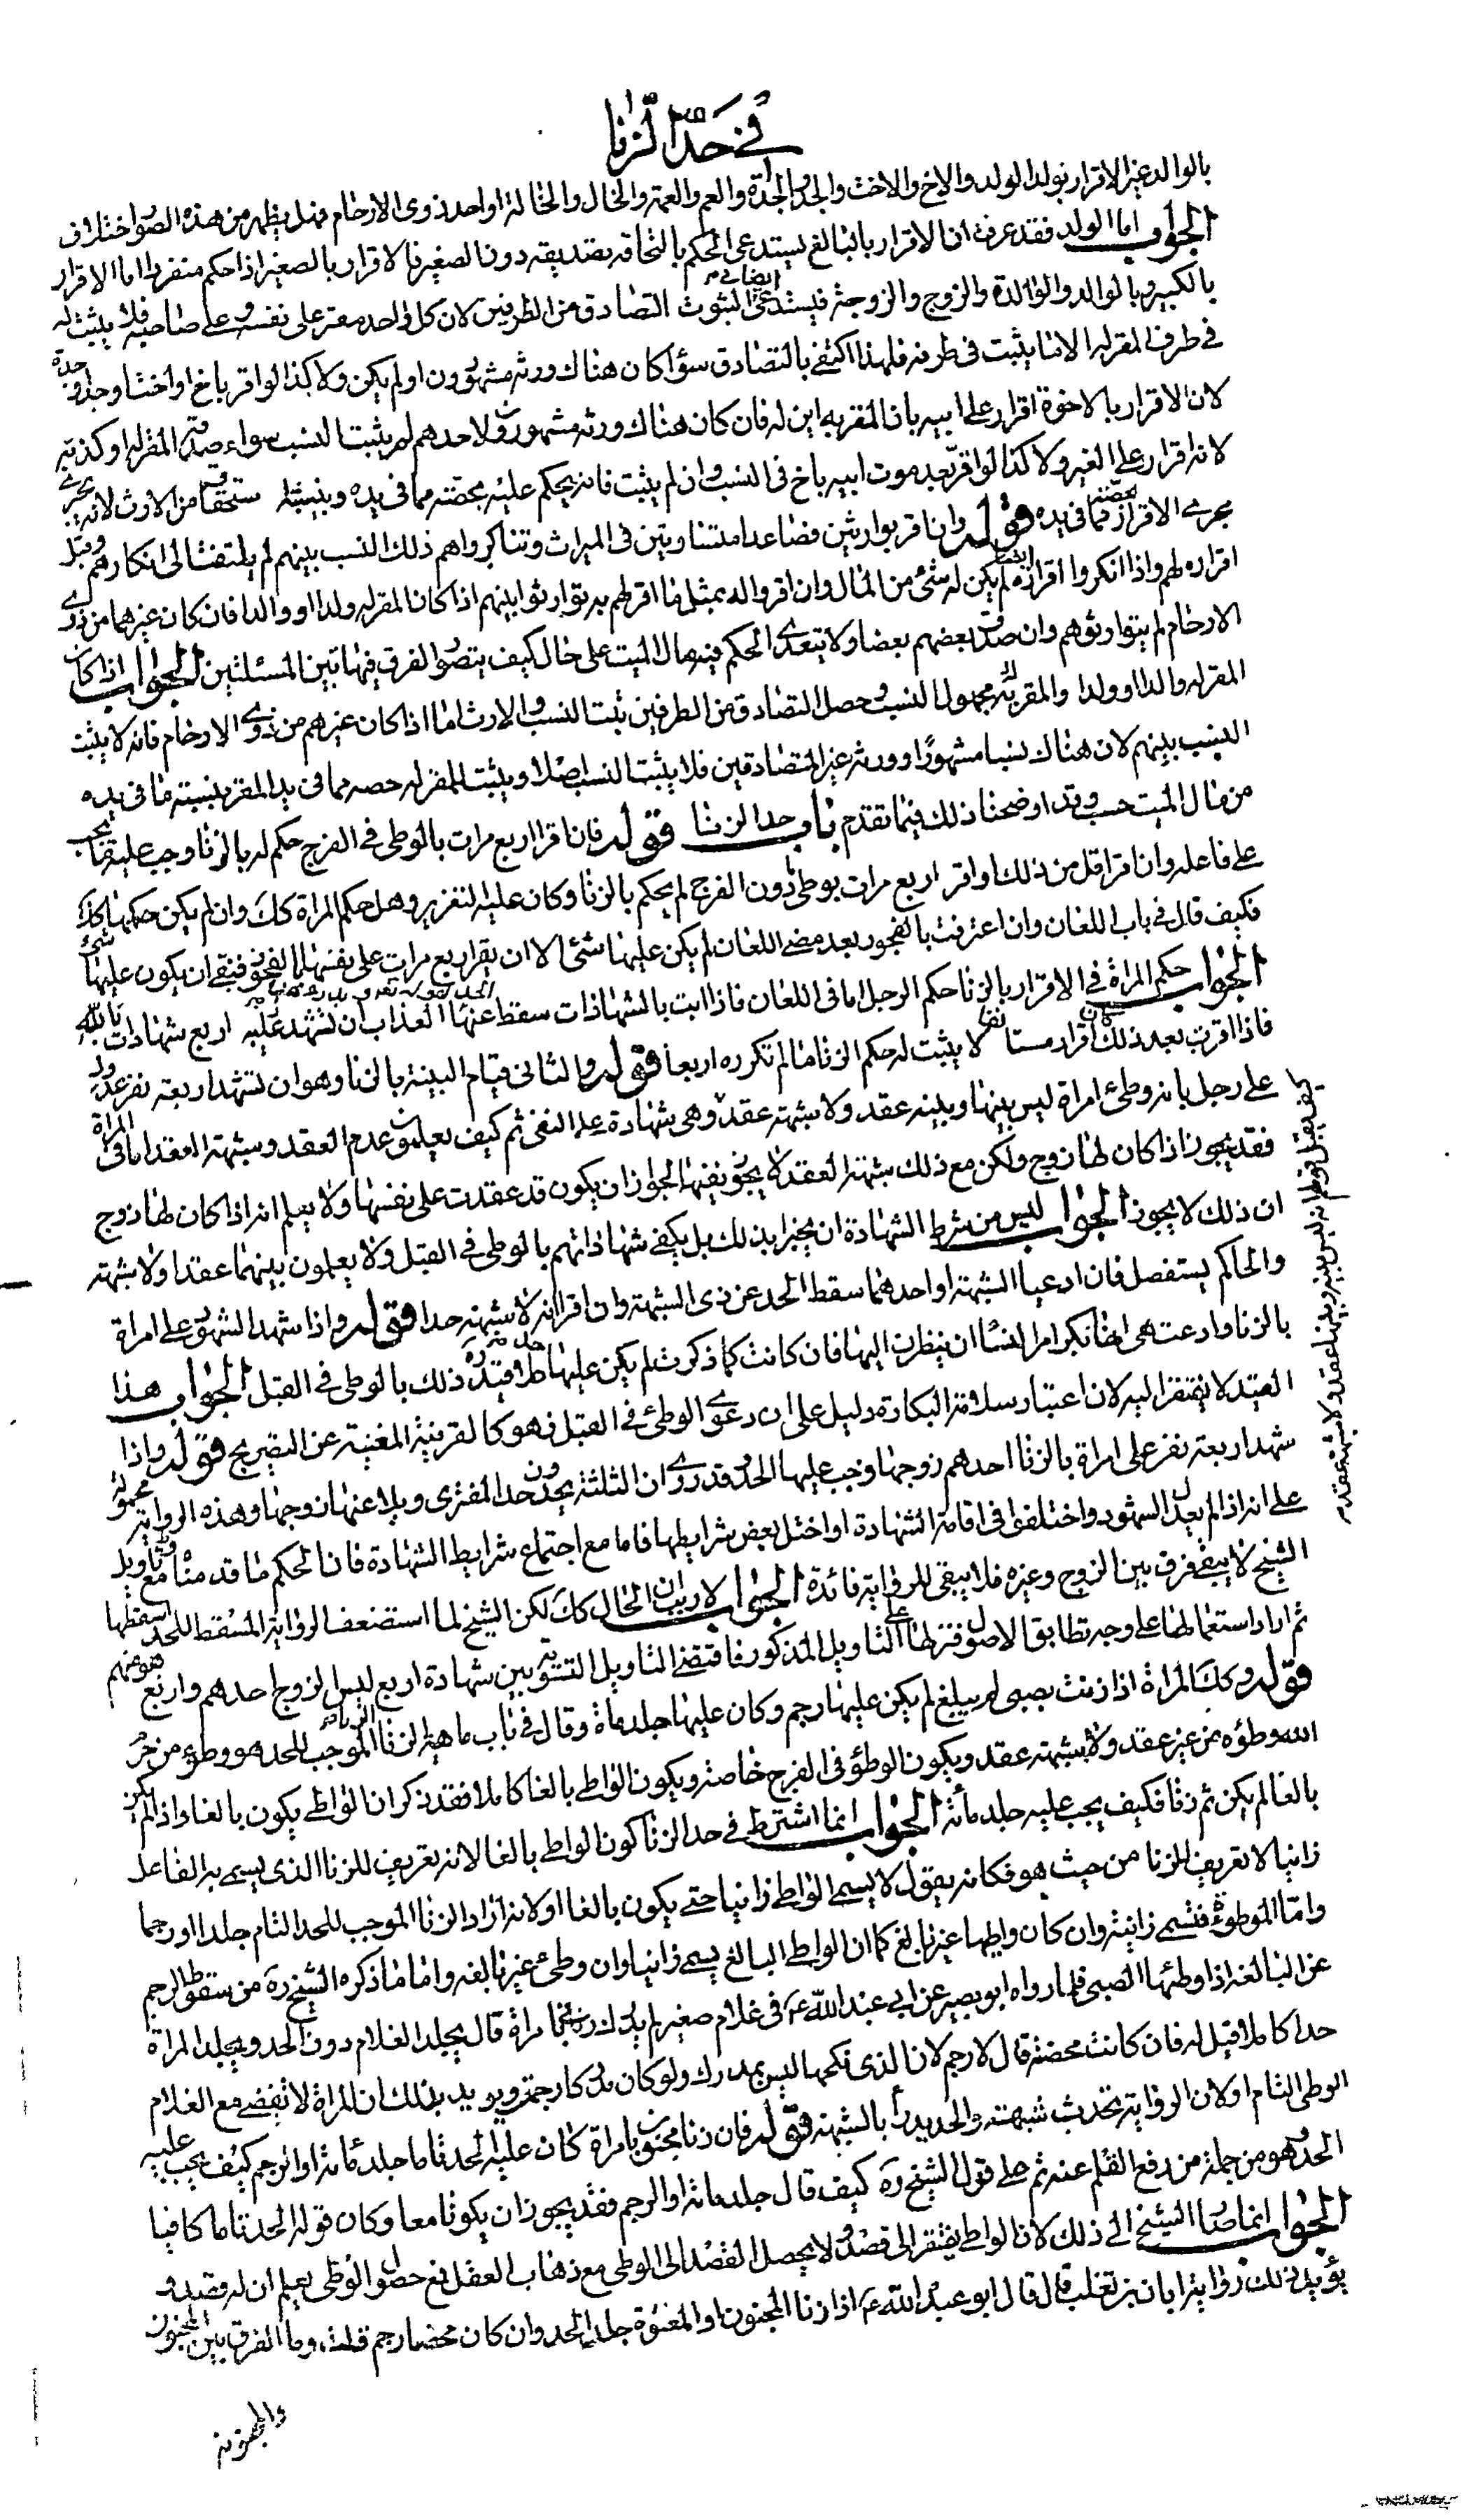 في حد الزنا
بالوالد غير الاقرار بولد الولد والاخ والاخت والجد والجدة والعم والعمة والخال والخالة او احد ذوى الارحام فهل يظهر من هذه الصور اختلاف
الجواب اما الولد فقد عرفت ان الاقرار بالبالغ يستدعى الحكم بالتحاقه تصديقه دون الصغير فالاقرار بالصغير اذا حكم منفردا اما الاقرار
بالكبير وبالوالد والوالدة والزوج والزوجة فيستدعى الثبوت ايضا التصادق من الطرفين لان كل واحد مقر على نفسه وعلى صاحبه فلا يثبت له
في طرف المقر له الا ما يثبت في طرفه فلهذا اكتفى بالتصادق سواء كان هناك ورثة مشهورون او لم يكن ولا كذا لو اقر باخ او اخت او جد او جدة
لان الاقرار بالاخوة اقرار على ابيه بان المقر به ابن له فان كان هناك ورثة مشهورون ولاحدهم لم يثبت النسب سواء صدقه المقر له او كذبه
لانه اقرار على الغير ولا كذا لو اقر بعد موت ابيه باخ في النسب وان لم يثبت فانه يحكم عليه بحصته مما في يده وبنسبته مستحقا من الارث لانه يجرى
مجرى الاقرار بحصته مما في يده قوله وان اقر بوارثين فصاعدا متساويين في الميراث وتناكروا هم ذلك النسب بينهم لم يلتفت الى انكارهم وقبل
اقراره لهم واذا انكروا اقراره ايضا لم يكن له شئ من المال وان اقروا له بمثل ما اقر لهم به توارثوا بينهم اذا كان المقر له ولدا او والدا فان كان غيرهما من ذوى
الارحام لم يتوارثوهم وان صدق بعضهم بعضا ولا يتعدى الحكم فيه مال الميت على حال كيف يتصور الفرق فيهاتين المسئلتين الجواب اذا كان
المقر له والدا او ولدا والمقر به مجهول النسب وحصل التصادق من الطرفين ثبت النسب والارث اما اذا كان غيرهم من ذوى الارحام فانه لا يثبت
النسب بينهم لان هناك نسبا مشهورا وورثة غير المتصادقين فلا يثبت النسب اصلا ويثبت للمقر له حصه مما في يد المقر بنسبته ما في يده
من مال الميت حسب وقد اوضحنا ذلك فيما تقدم باب حد الزنا قوله فان اقر اربع مرات بالوطى في الفرج حكم له بالزنا وجب عليه ما يجب
على فاعله وان اقر اقل من ذلك او اقر اربع مرات بوطى ما دون الفرج لم يحكم بالزنا وكان عليه التعزير وهل حكم المراة كك وان لم يكن حكمها كك
فكيف قال في باب اللعان وان اعترفت بالفجور بعد مضى اللعان لم يكن عليها شئ الا ان يقر اربع مرات على نفسها بالفجور فينبغي ان يكون عليها شئ
الجواب حكم المراة في الاقرار بالزنا حكم الرجل اما في اللعان فاذا اتت بالشهادات سقط عنها العذاب ان تشهد عليه اربع شهادات بالله
فاذا اقرت بعد ذلك كان اقرار مستانفا لا يثبت له حكم الزنا ما لم تكرره اربعا قوله والثانى قيام البينة بالزنا وهو ان تشهد اربعة نفر عدول
على رجل بانه وطئ امراة ليس بينها وبينه عقد ولا شبهة عقد وهى شهادة على النفى ثم كيف يعلمون عدم العقد وشبهة العقد اما في المراة
فقد يجوز اذا كان لها زوج ولكن مع ذلك شبهة العقد لا يجوز نفيها لجواز ان يكون قد عقدت على نفسها ولا يعلم انه اذا كان لها زوج
ان ذلك لا يجوز الجواب ليس من شرط الشهادة ان يخبرا بذلك بل يكفى شهاداتهم بالوطى في القبل ولا يعلمون بينهما عقدا ولا شبهة
والحاكم يستفصل فان ادعيا الشبهة او احدهما سقط الحد عن ذى الشبهة وان اقرا انه لا شبهة حدا قوله واذا شهد الشهود على امراة
بالزنا وادعت هى انها بكر امر النساء ان ينظرن اليها فان كانت كما ذكرت لم يكن عليها حد ذلك بالوطى في القبل الجواب هذا
القيد لا يفتقر اليه لان اعتبار سلامة البكارة دليل على ان دعوى الوطئ في القبل فهو كالقرينة المغنية عن التصريح قوله واذا
شهد اربعة نفر على امراة بالزنا احدهم زوجها وجب عليها الحد وقد روى ان الثلثة يحدون حد المفترى ويلاعنها زوجها وهذه الرواية محمولة
على انه اذا لم يعدل الشهود واختلفوا في اقامة الشهادة او اختل بعض شرايطها فاما مع اجتماع شرايط الشهادة فان الحكم ما قدمناه مع تاويل
الشيخ لا يبقى فرق بين الزوج وغيره فلا يبقى للرواية فائدة الجواب لا ريب ان الحال كك لكن الشيخ لما استضعف الرواية المسقط للحد اسقطها
ثم اراد استعمالها على وجه تطابق الاصول فنزلها على التاويل المذكور فاقتضى التاويل التسوية بين شهادة اربع ليس الزوج احدهم واربع هو منهم
قوله وكك المراة اذا زنت بصبى لم يبلغ لم يكن عليها رجم وكان عليها جلد مائة وقال في باب ماهية الزنا الزنا الموجب للحد هو وطئ من حرم
الله وطؤه من غير عقد ولا شبهة عقد ويكون الوطؤ في الفرج خاصة ويكون الواطى بالغا كاملا فقد ذكر ان الواطى يكون بالغا واذا لم يكن
بالغا لم يكن ثم زنا فكيف يجب عليه جلد مائة الجواب انما اشترط في حد الزنا كون الواطى بالغا لانه تعريف للزنا الذى يسمى به الفاعل
زانيا لا تعريف للزنا من حيث هو فكانه يقول لا يسمى الواطى زانيا حتى يكون بالغا او لانه اراد الزنا الموجب للحد التام جلدا او رجما
وامّا الموطوئة فتسمى زانية وان كان واطيها غير بالغ كما ان الواطى البالغ يسمى زانيا وان وطئ غير بالغه واما ما ذكره الشيخ ره من سقوط الرجم
عن البالغة اذا وطئها الصبى فلما رواه ابو بصير عن ابى عبد الله ع في غلام صغير لم يدرك زنى بامراة قال يجلد الغلام دون الحد ويجلد المراة
حدا كاملا قيل له فان كانت محصنة قال لا رجم لان الذى نكحها ليس بمدرك ولو كان مدركا رجمت ويريد بذلك ان المراة لا تفضى مع الغلام
الوطى التام او لان الرواية تحدث شبهة والحد يدرأ بالشبهة قوله فان زنا مجنون بامراة كان عليه الحد تاما جلد مائة او الرجم كيف يجب عليه
الحد وهو من جملة من رفع القلم عنه ثم على قول الشيخ ره كيف قال جلد مائة او الرجم فقد يجوز ان يكونا معا وكان قوله الحد تاما كافيا
الجواب انما صار الشيخ الى ذلك لان الواطى يفتقر الى قصد ولا يحصل القصد الى الوطى مع ذهاب العقل فمع حصول الوطى يعلم ان له قصدا و
يؤيد ذلك رواية ابان بن تغلب قال قال ابو عبد الله ع اذا زنا المجنون او المعتوة جلد الحد وان كان محصنا رجم قلت وما الفرق بين المجنون
والمجنونة
كيف يقبل قولهم انه ليس بينه وبينها عقد ولا شبهة عقد